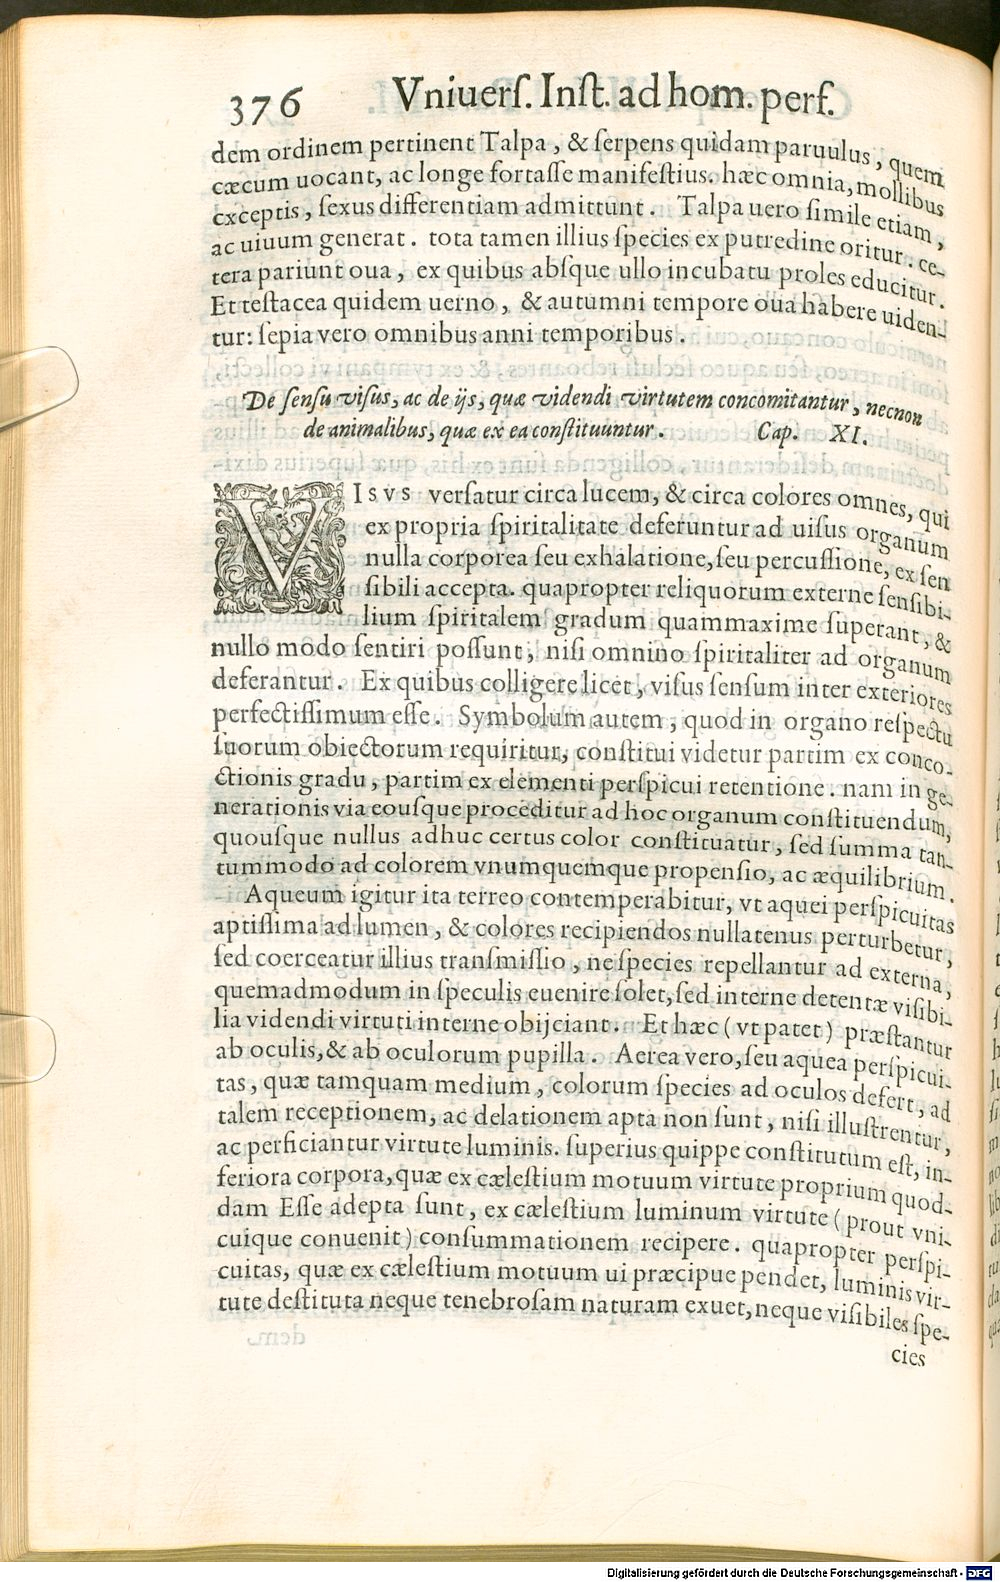 376 Vniuerſ. Inſt. ad hom. perf.
dem ordinem pertinent Talpa, & ſerpens quidam paruulus, quem
cæcum uocant, ac longe fortaſſe manifeſtius. hæc omnia, mollibus
exceptis, ſexus differentiam admittunt. Talpa uero ſimile etiam,
ac uiuum generat. tota tamen illius ſpecies ex putredine oritur. ce-
tera pariunt oua, ex quibus abſque ullo incubatu proles educitur.
Et teſtacea quidem uerno, & autumni tempore oua habere uiden-
tur: ſepia vero omnibus anni temporibus.
De ſenſu viſus, ac de ijs, quæ videndi virtutem concomitantur, necnon
de animalibus, quæ ex ea conſtituuntur. Cap. XI.
VISVS verſatur circa lucem, & circa colores omnes, qui
ex propria ſpiritalitate deferuntur ad uiſus organum
nulla corporea ſeu exhalatione, ſeu percuſſione, ex ſen
ſibili accepta. quapropter reliquorum externe ſenſibi-
lium ſpiritalem gradum quammaxime ſuperant, &
nullo modo ſentiri poſſunt, niſi omnino ſpiritaliter ad organum
deferantur. Ex quibus colligere licet, viſus ſenſum inter exteriores
perfectiſſimum eſſe. Symbolum autem, quod in organo reſpectu
ſuorum obiectorum requiritur, conſtitui videtur partim ex conco-
ctionis gradu, partim ex elementi perſpicui retentione. nam in ge-
nerationis via eouſque proceditur ad hoc organum conſtituendum,
quouſque nullus adhuc certus color conſtituatur, ſed ſumma tan-
tummodo ad colorem vnumquemque propenſio, ac æquilibrium.
Aqueum igitur ita terreo contemperabitur, vt aquei perſpicuitas
aptiſſima ad lumen, & colores recipiendos nullatenus perturbetur,
ſed coerceatur illius tranſmiſſio, ne ſpecies repellantur ad externa,
quemadmodum in ſpeculis euenire ſolet, ſed interne detentæ viſibi-
lia videndi virtuti interne obijciant. Et hæc (vt patet) præſtantur
ab oculis, & ab oculorum pupilla. Aerea vero, ſeu aquea perſpicui-
tas, quæ tamquam medium, colorum ſpecies ad oculos defert, ad
talem receptionem, ac delationem apta non ſunt, niſi illuſtrentur,
ac perficiantur virtute luminis. ſuperius quippe conſtitutum eſt, in-
feriora corpora, quæ ex cæleſtium motuum virtute proprium quod-
dam Eſſe adepta ſunt, ex cæleſtium luminum virtute (prout vni-
cuique conuenit) conſummationem recipere. quapropter perſpi-
cuitas, quæ ex cæleſtium motuum ui præcipue pendet, luminis vir-
tute deſtituta neque tenebroſam naturam exuet, neque viſibiles ſpe-
cies
Digitalisierung gefördert durch die Deutsche Forschungsgemeinschaft - DFG